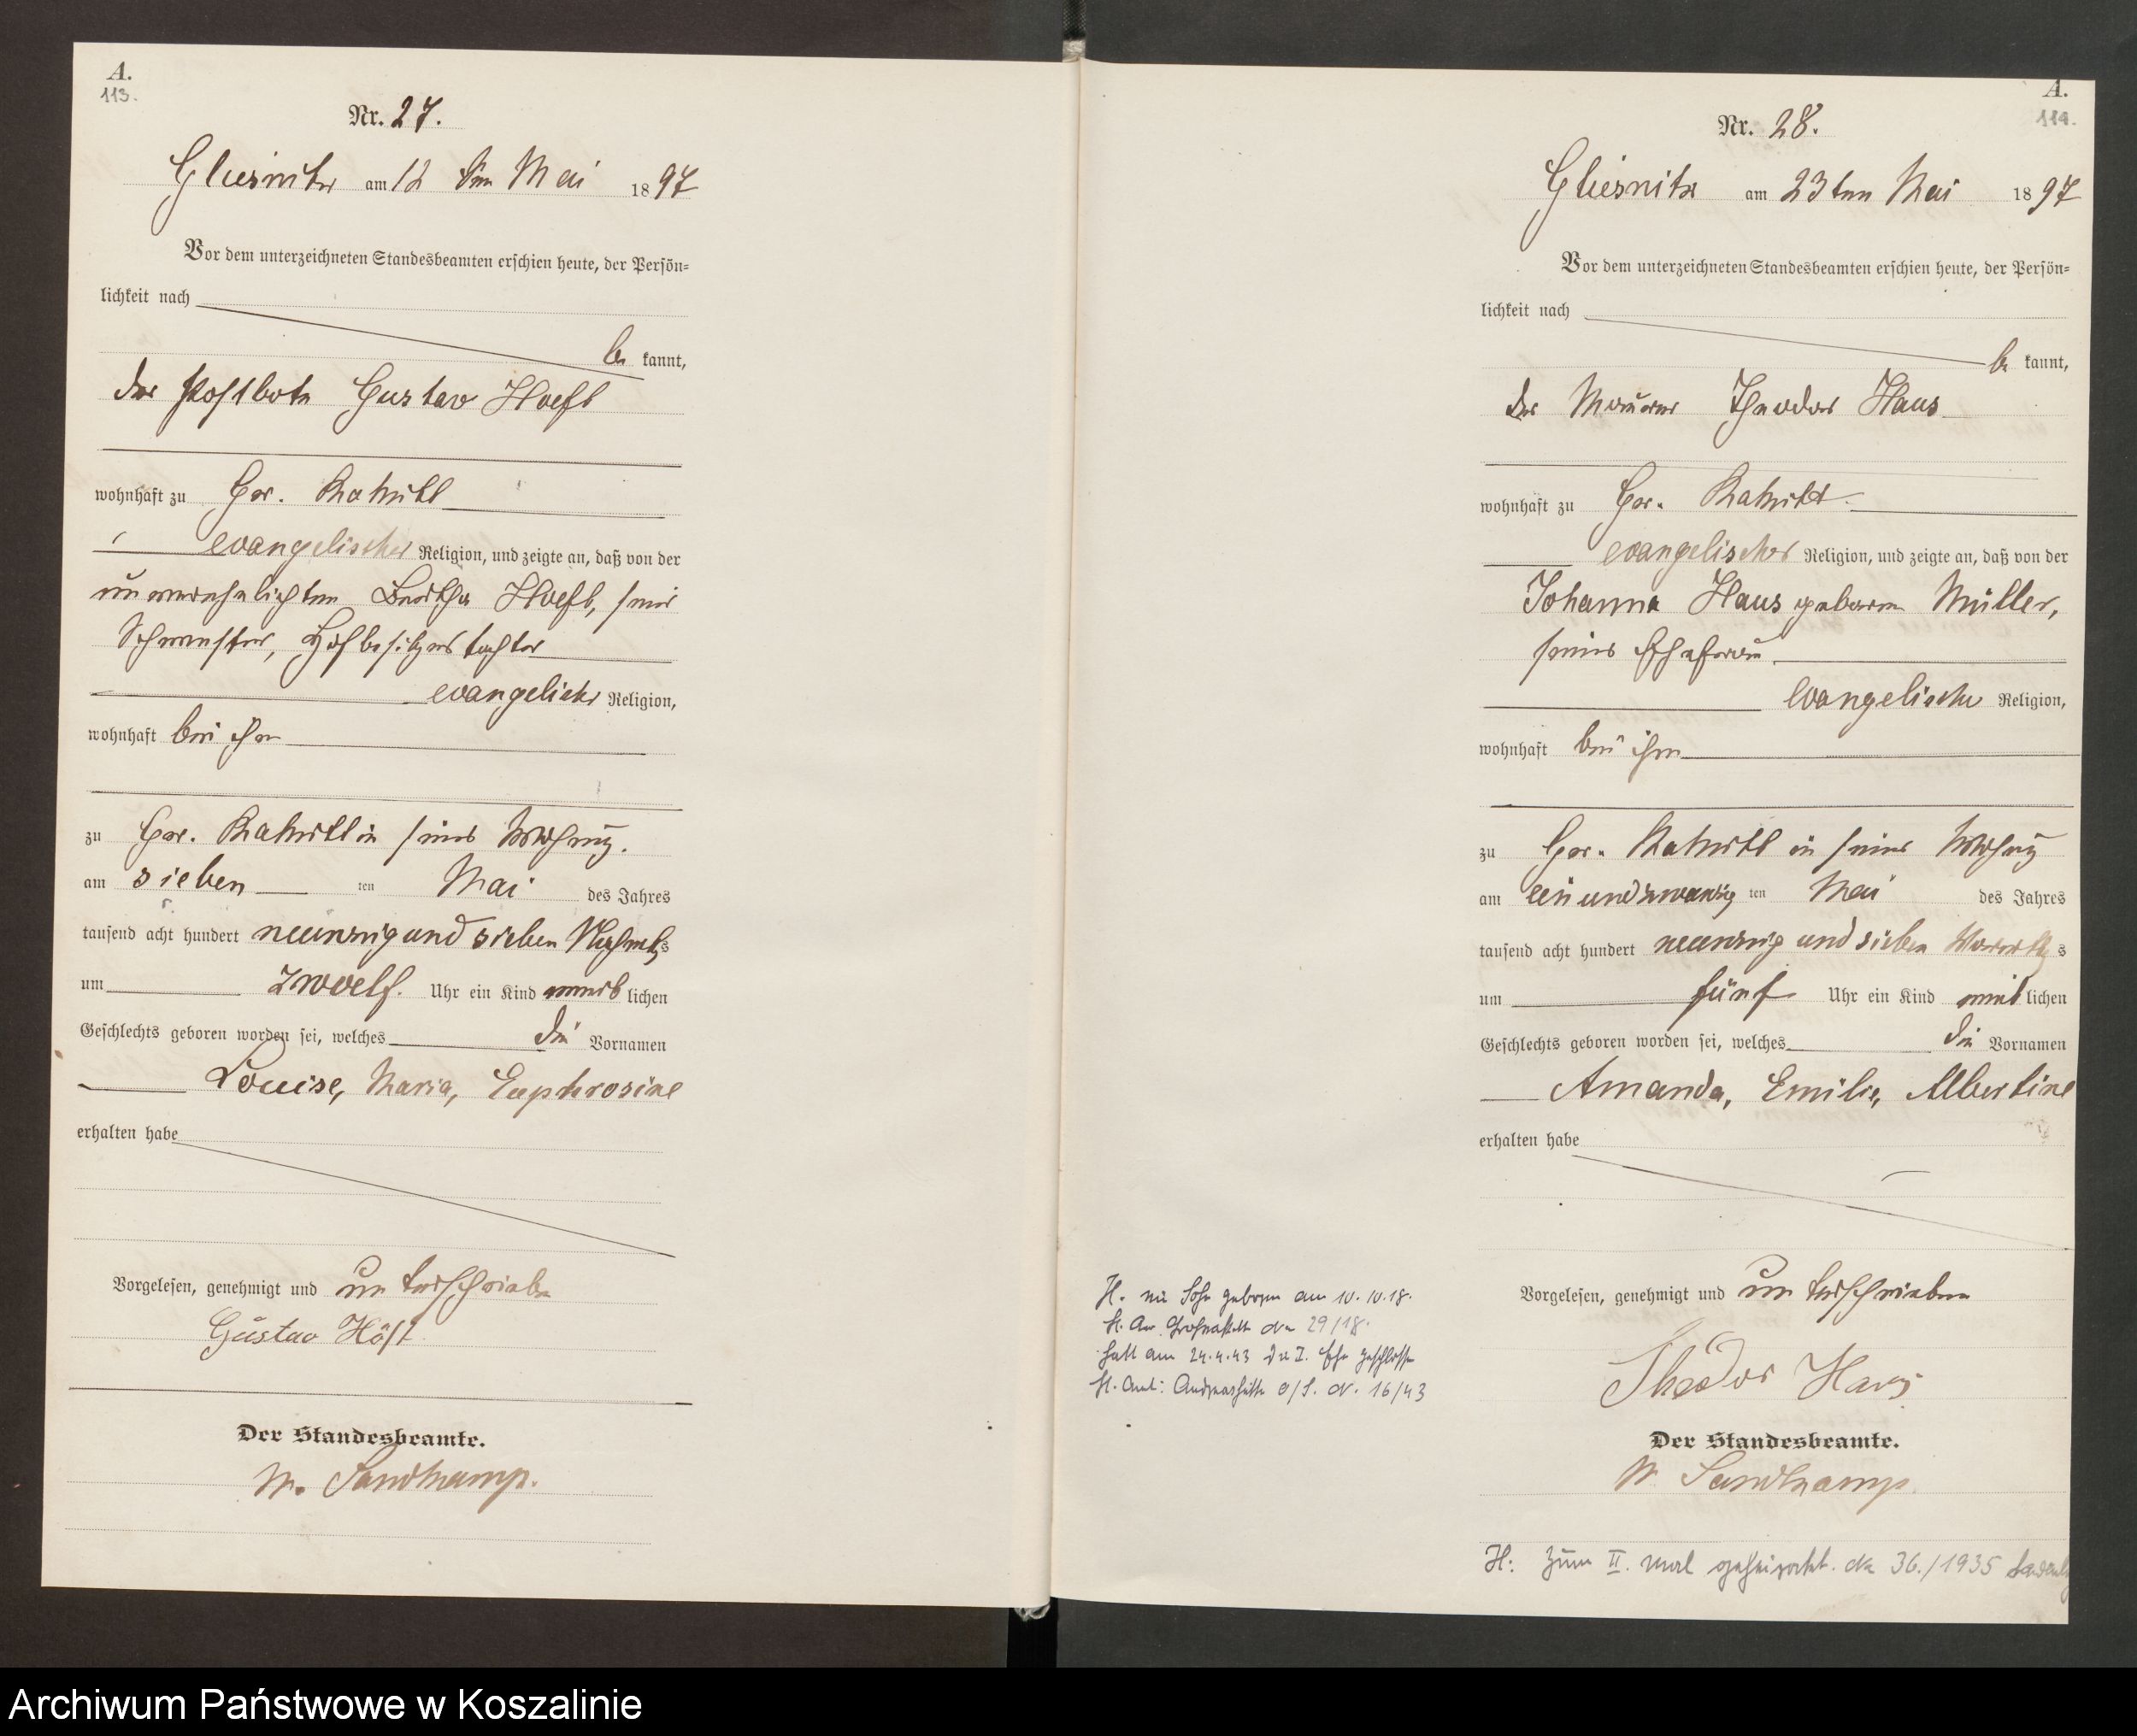 A.
113.
Nr. 27.
Gliesnitz am 12 ten Mai 1897
Vor dem unterzeichneten Standesbeamten erschien heute, der Persön-
lichkeit nach
be kannt,
der Postbote Gustav Hoeft
wohnhaft zu Gr. Rakitt
evangelischer Religion, und zeigte an, daß von der
unverehelichten Bertha Hoeft, seine
Schwester, Hofbesitzertochter
evangelischer Religion,
wohnhaft bei ihm
zu Gr. Rakitt in seiner Wohnung.
am sieben ten Mai des Jahres
tausend acht hundert neunzig und sieben Nachmittags
um zwoelf. Uhr ein Kind weib lichen
Geschlechts geboren worden sei, welches die Vornamen
Louise, Maria, Euphrosine
erhalten habe
Vorgelesen, genehmigt und unterschrieben
Gustav Höft
Der Standesbeamte.
W. Sandkamp.
A.
114.
Nr. 28.
Gliesnitz am 23ten Mai 1897
Vor dem unterzeichneten Standesbeamten erschien heute, der Persön-
lichkeit nach
be kannt,
der Maurer Theodor Haus
wohnhaft zu Gr. Rakitt
evangelischer Religion, und zeigte an, daß von der
Johanna Haus geborene Müller,
seiner Ehefrau
evangelischer Religion,
wohnhaft bei ihm
zu Gr. Rakitt in seiner Wohnung
am ein und zwanzig ten Mai des Jahres
tausend acht hundert neunzig und sieben Vormittags
um fünf Uhr ein Kind weib lichen
Geschlechts geboren worden sei, welches die Vornamen
Amanda, Emilie, Albertine
erhalten habe
Vorgelesen, genehmigt und unterschrieben
Theodor Haus
Der Standesbeamte.
W Sandkamp.
H. ein Sohn geboren am 10.10.18.
St. Am. 29/18.
hatt am 24.4.43 die I. Ehe geschlossen
St. Amt: Andreashütte O/S. Nr. 16/43
H: Zum II. mal geheiratet. Nr 36./1935
Archiwum Państwowe w Koszalinie